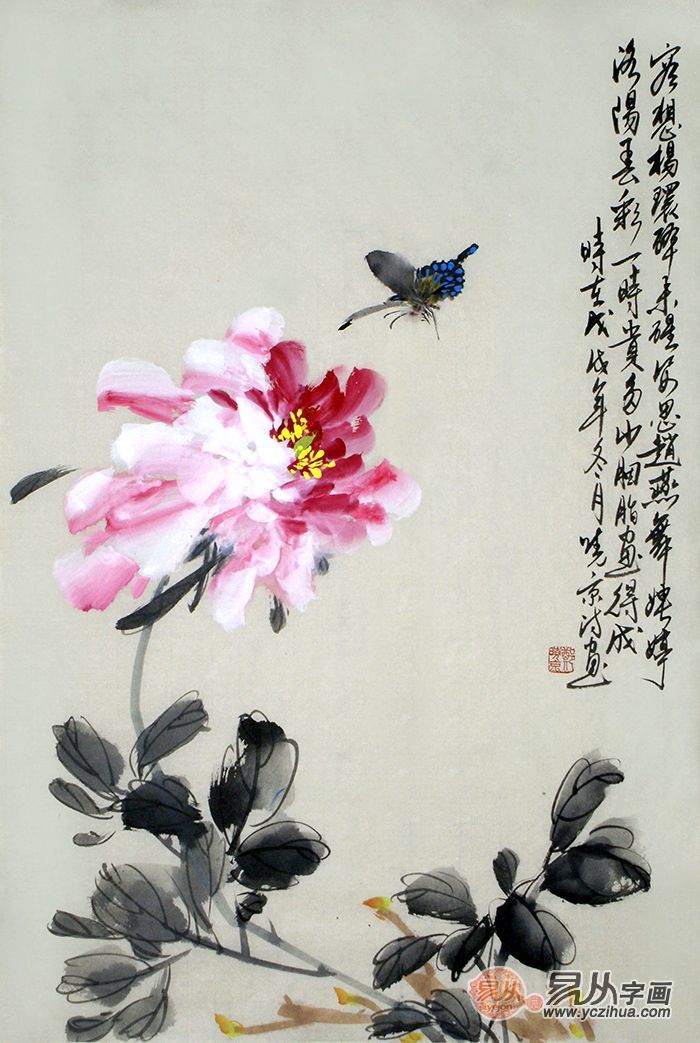 容想楊環醉未醒姿思趙燕舞娉婷
洛陽春彩一時貴多少胭脂畫得成
時在戊戌年冬月曉京詩畫
易从
易从字画
www.yczihua.com